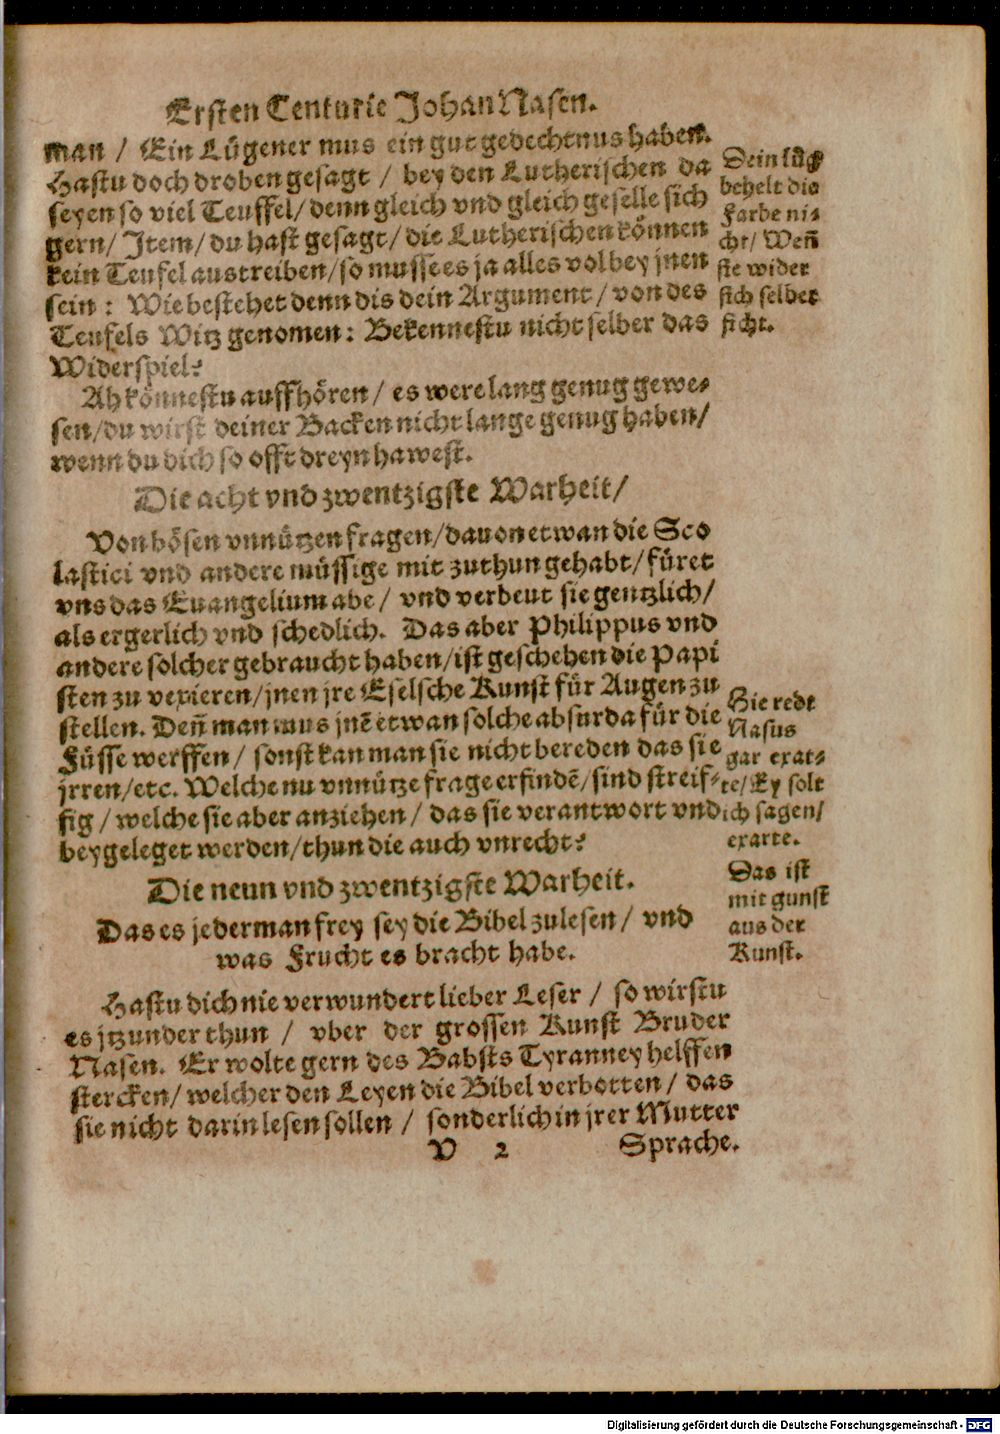 Ersten Centurie Johan Nasen.
man / Ein Lügener mus ein gut gedechtnus haben.
Hastu doch droben gesagt / bey den Lutherischen da
seyen so viel Teuffel / denn gleich vnd gleich geselle sich
gern / Item / du hast gesagt / die Lutherischen können
kein Teufel austreiben / so musse es ja alles vol bey jnen
sein : Wie bestehet denn dis dein Argument / von des
Teufels Witz genomen : Bekennestu nicht selber das
Widerspiel?
Dein lüg
behelt die
Farbe ni=
cht / Weñ
sie wider
sich selber
ficht.
Ah könnestu auffhören / es were lang genug gewe=
sen / du wirst deiner Backen nicht lange genug haben /
wenn du dich so offt dreyn hawest.
Die acht vnd zwentzigste Warheit /
Von bösen vnnützen fragen / dauon etwan die Sco
lastici vnd andere müssige mit zuthun gehabt / füret
vns das Euangelium abe / vnd verbeut sie gentzlich /
als ergerlich vnd schedlich. Das aber Philippus vnd
andere solcher gebraucht haben / ist geschehen die Papi
sten zu vexieren / jnen jre Eselsche Kunst für Augen zu
stellen. Deñ man mus jnẽ etwan solche absurda für die
Füsse werffen / sonst kan man sie nicht bereden das sie
jrren / etc. Welche nu vnnütze frage erfindẽ / sind streif=
fig / welche sie aber anziehen / das sie verantwort vnd
beygeleget werden / thun die auch vnrecht?
Hie redt
Nasus
gar exat=
te / Ey solt
ich sagen /
exarte.
Das ist
mit gunst
aus der
Kunst.
Die neun vnd zwentzigste Warheit.
Das es jederman frey sey die Bibel zulesen / vnd
was Frucht es bracht habe.
Hastu dich nie verwundert lieber Leser / so wirstu
es jtzunder thun / vber der grossen Kunst Bruder
Nasen. Er wolte gern des Babsts Tyranney helffen
stercken / welcher den Leyen die Bibel verbotten / das
sie nicht darin lesen sollen / sonderlich in jrer Mutter
V 2 Sprache.
Digitalisierung gefördert durch die Deutsche Forschungsgemeinschaft - DFG